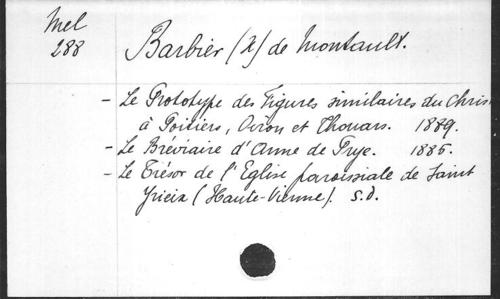 Mel
288
Barbier (X) de Montault.
- Le Prototype des Figures similaires du Chris
à Poitiers, Oiron et Thouars. 1889.
- Le Bréviaire d'Anne de Prye. 1885.
- Le Trésor de l'Eglise paroissiale de Saint
Yrieix (Haute-Vienne). S.d.